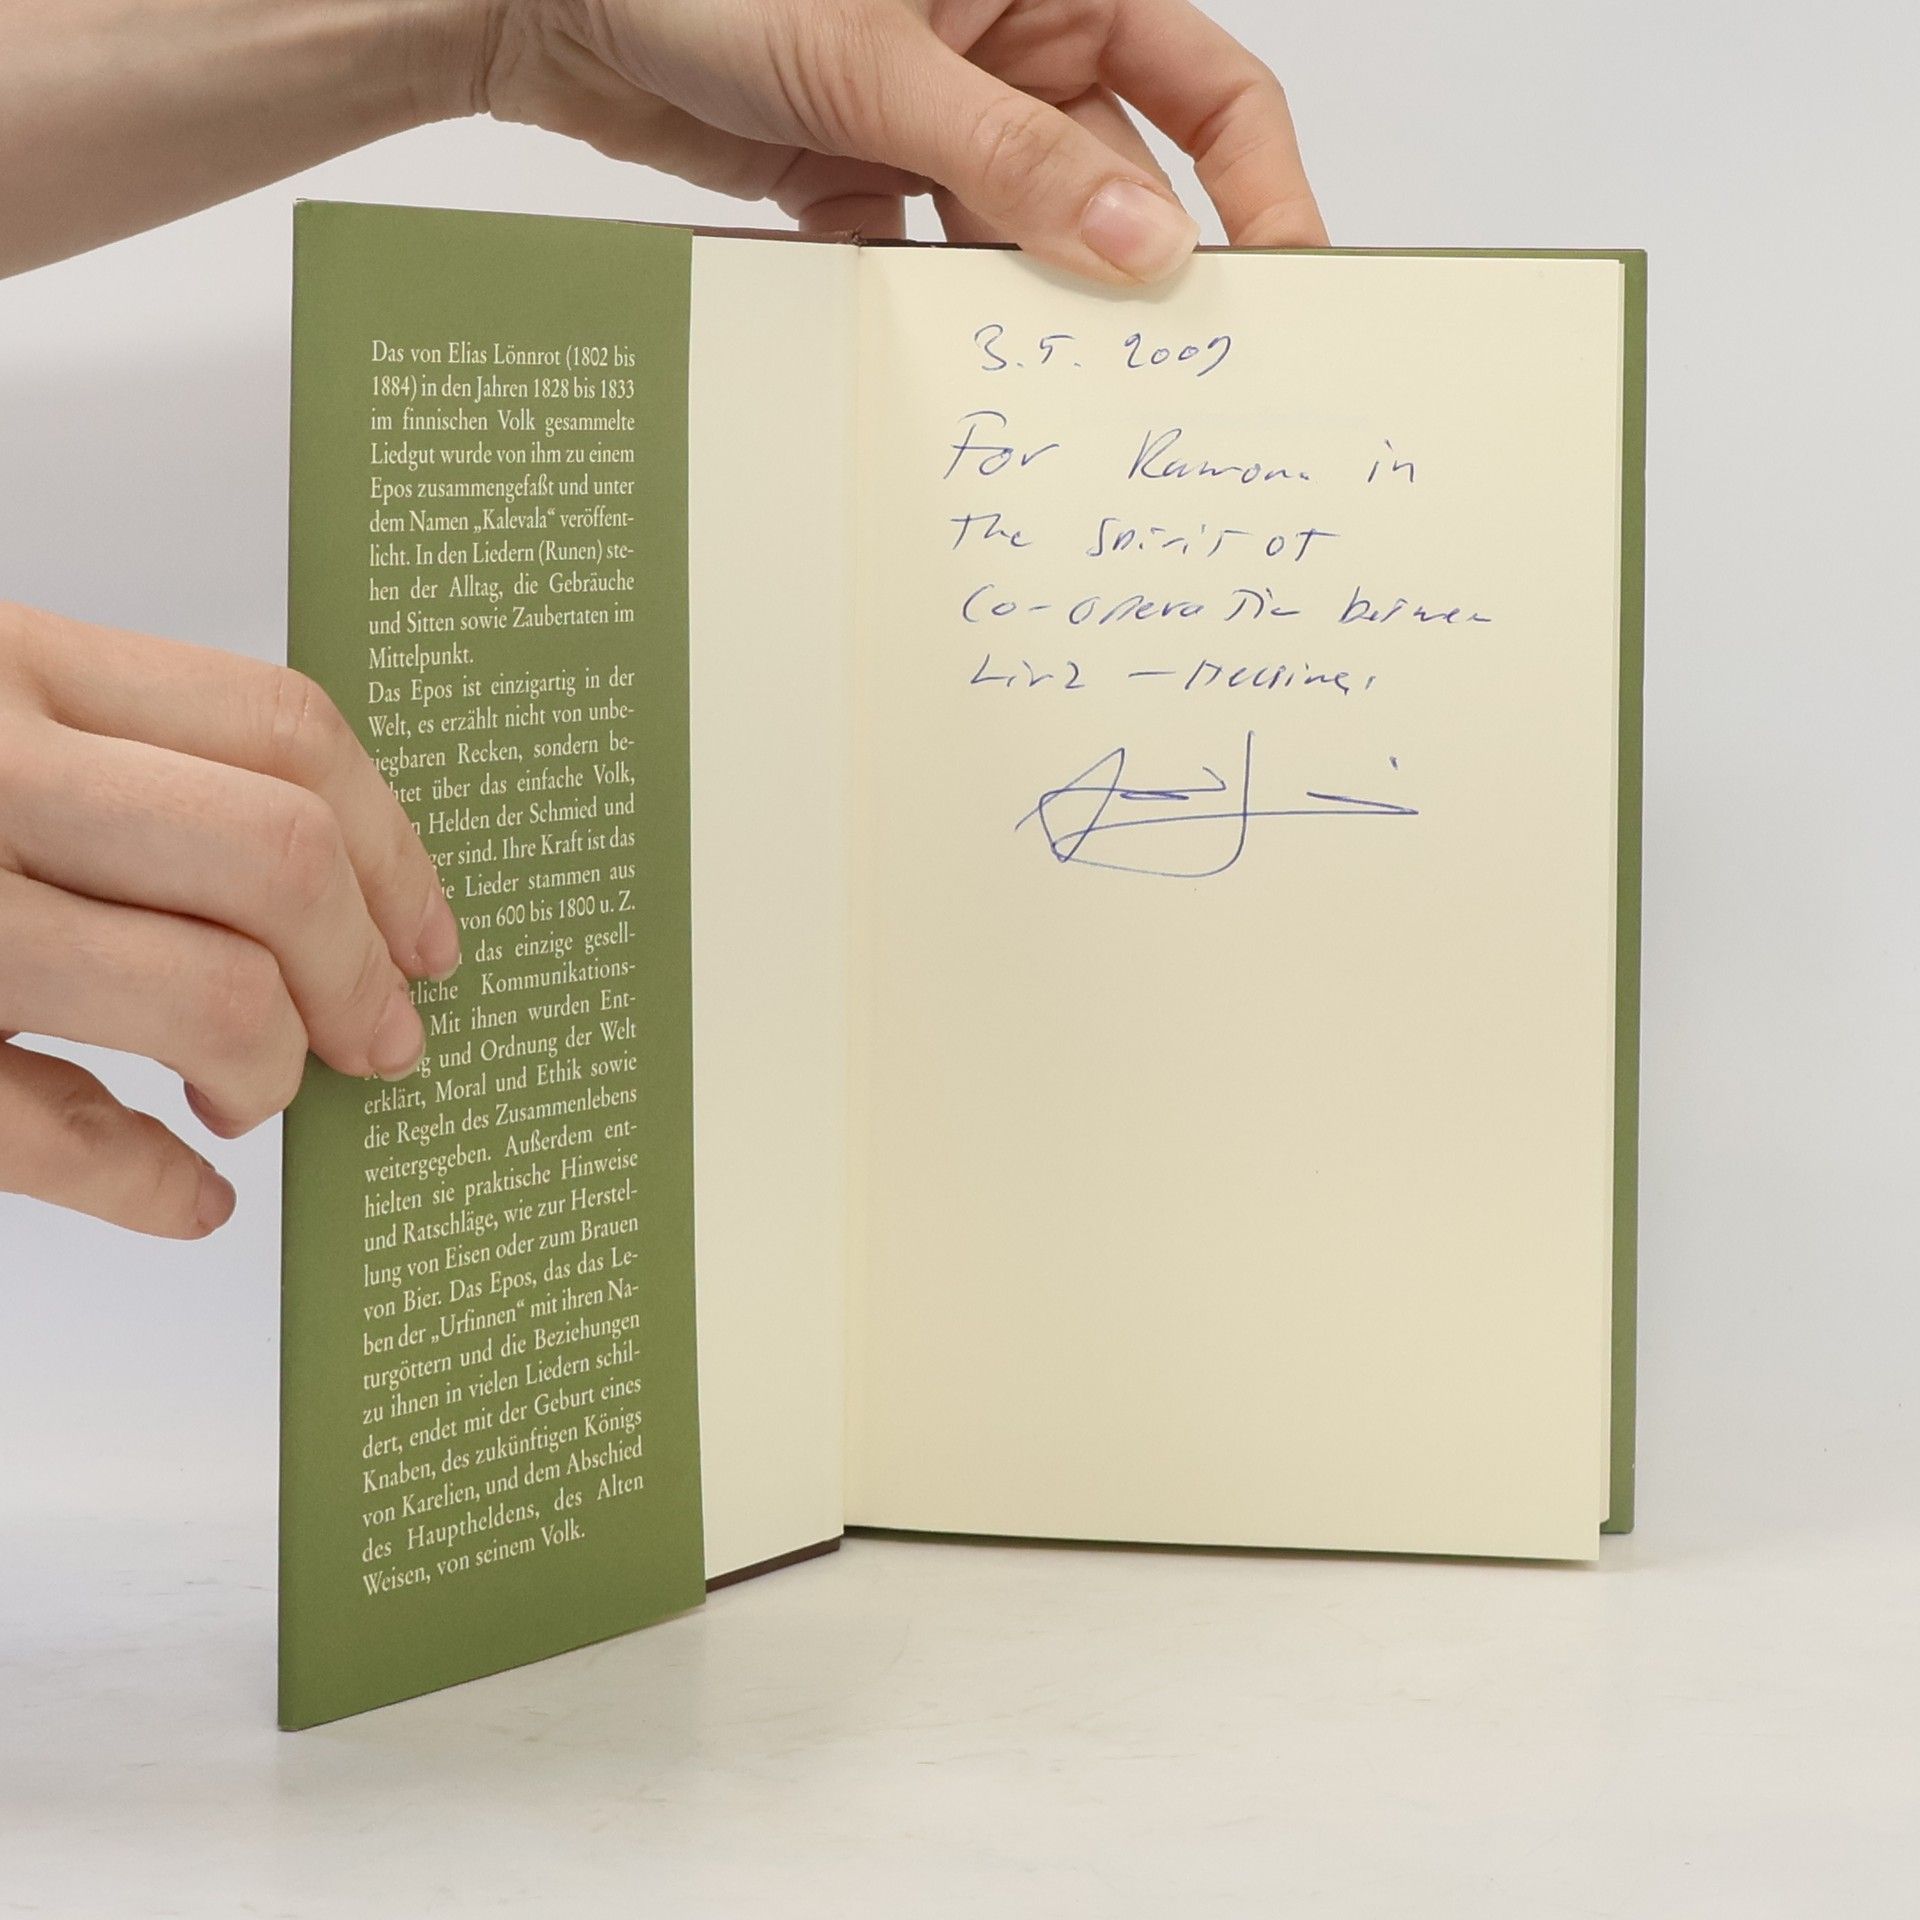 Das von Elias Lönnrot (1802 bis
1884) in den Jahren 1828 bis 1833
im finnischen Volk gesammelte
Liedgut wurde von ihm zu einem
Epos zusammengefaßt und unter
dem Namen „Kalevala“ veröffent-
licht. In den Liedern (Runen) ste-
hen der Alltag, die Gebräuche
und Sitten sowie Zaubertaten im
Mittelpunkt.
Das Epos ist einzigartig in der
Welt, es erzählt nicht von unbe-
iegbaren Recken, sondern be-
htet über das einfache Volk,
n Helden der Schmied und
ger sind. Ihre Kraft ist das
ie Lieder stammen aus
von 600 bis 1800 u. Z.
das einzige gesell-
tliche Kommunikations-
Mit ihnen wurden Ent-
g und Ordnung der Welt
erklärt, Moral und Ethik sowie
die Regeln des Zusammenlebens
weitergegeben. Außerdem ent-
hielten sie praktische Hinweise
und Ratschläge, wie zur Herstel-
lung von Eisen oder zum Brauen
von Bier. Das Epos, das das Le-
ben der „Urfinnen“ mit ihren Na-
turgöttern und die Beziehungen
zu ihnen in vielen Liedern schil-
dert, endet mit der Geburt eines
Knaben, des zukünftigen Königs
von Karelien, und dem Abschied
des Haupthelden, des Alten
Weisen, von seinem Volk.
3.5. 2009
For Ramona in
the spirit of
Co-operation between
Linz - Helsinki